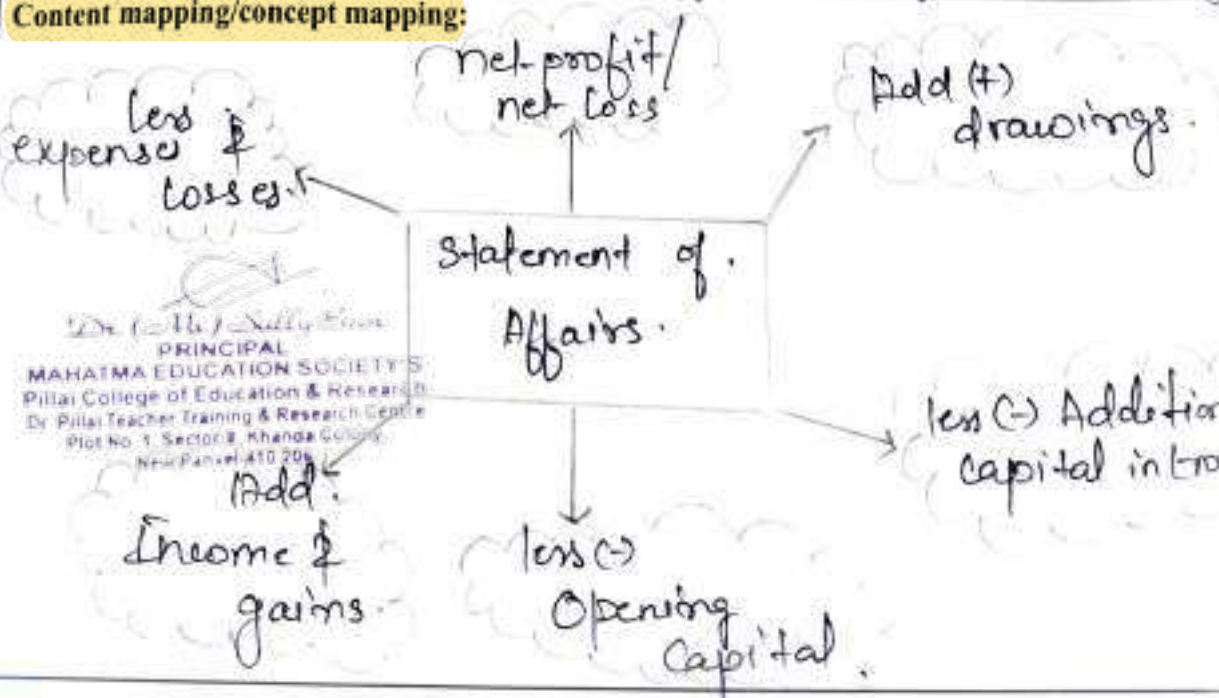 Content mapping/concept mapping:
net profit/
net loss
Add (+)
drawings.
less
expenses &
losses.
Statement of.
Affairs.
PRINCIPAL
MAHATMA EDUCATION SOCIETY'S
Pillai College of Education & Research
Dr. Pillai Teacher Training & Research Centre
Plot No. 1, Sector 8, Khanda Colony,
New Panvel-410 206
less (-) Addition
capital intro
Add:
Income &
gains.
less (-)
Opening
Capital.